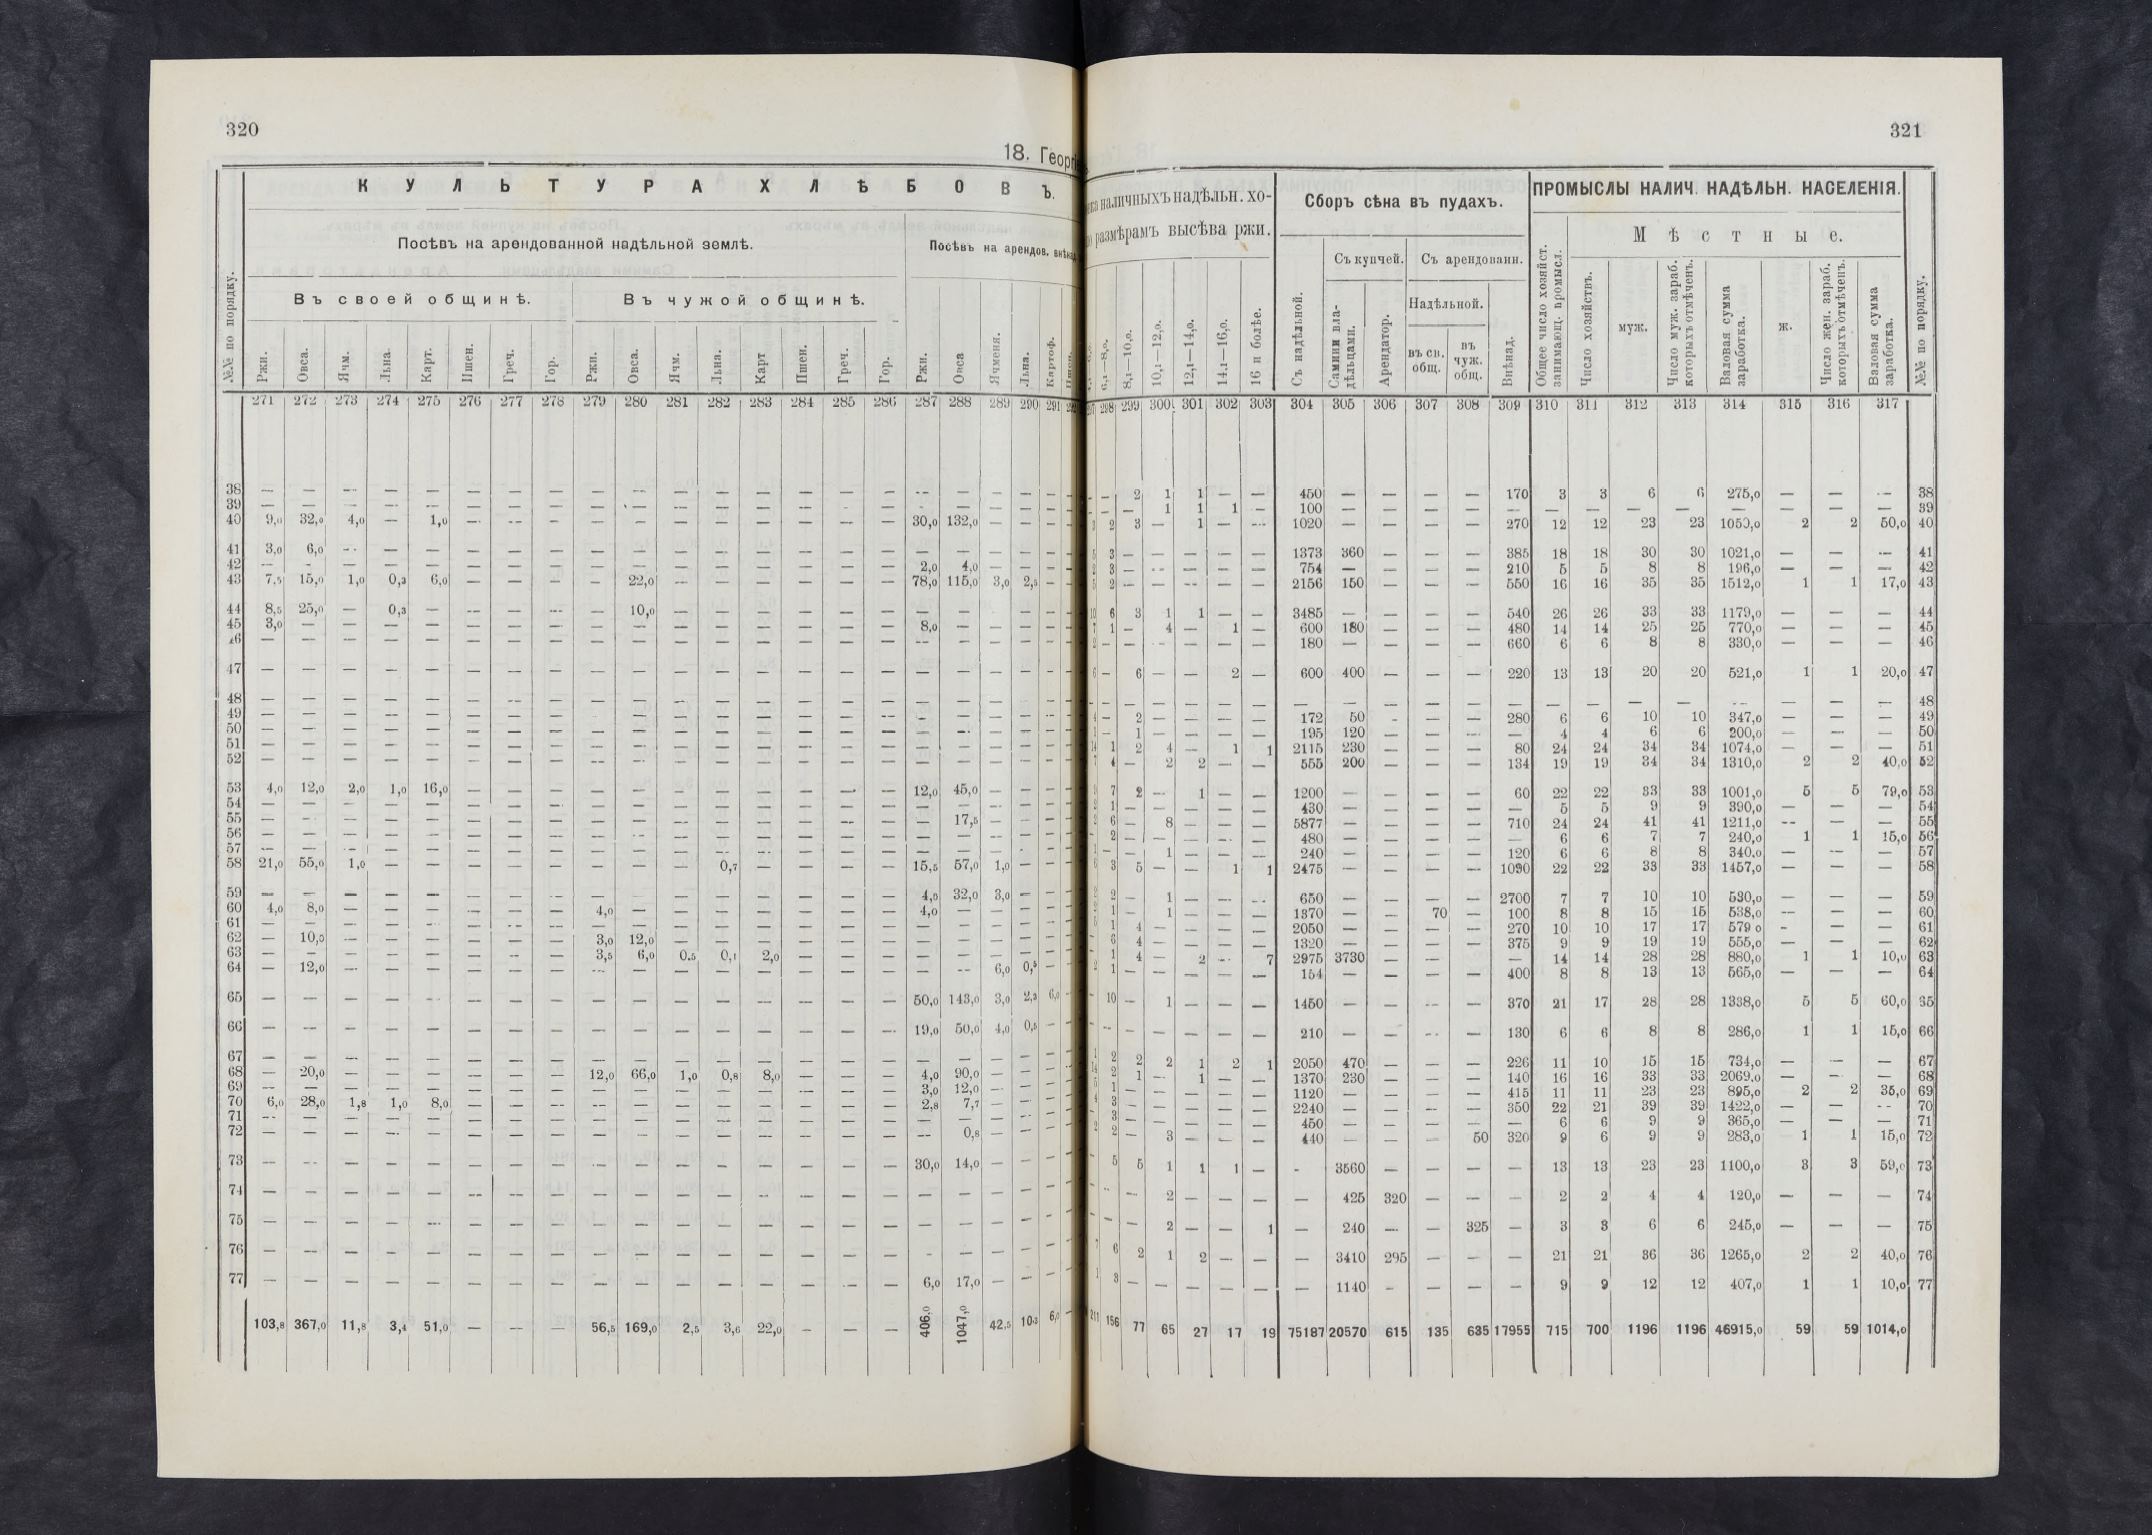 320
18. Георгі
КУЛЬТУРА ХЛѢБОВЪ.
Посѣвъ на арендованной надѣльной землѣ.
Посѣвъ на арендов. внѣнад
Въ своей общинѣ.
Въ чужой общинѣ.
№№ по порядку. Ржи. Овса. Ячм. Льна. Карт. Пшен. Греч. Гор. Ржи. Овса. Ячм. Льна. Карт Пшен. Греч. Гор. Ржи. Овса Ячменя. Льна. Картоф.
271 272 273 274 275 276 277 278 279 280 281 282 283 284 285 286 287 288 289 290 291
38 — — — — — — — — — — — — — — — — — — — — —
39
40 9,0 32,0 4,0 — 1,0 — — — — — — — — — — — 30,0 132,0 — — —
41 3,0 6,0 — — — — — — — — — — — — — — — — — — —
42 — — — — — — — — — — — — — — — — 2,0 4,0 — — —
43 7,5 15,0 1,0 0,3 6,0 — — — — 22,0 — — — — — — 78,0 115,0 3,0 2,5 —
44 8,5 25,0 — 0,3 — — — — — 10,0 — — — — — — — — — — —
45 3,0 — — — — — — — — — — — — — — — 8,0 — — — —
46 — — — — — — — — — — — — — — — — — — — — —
47 — — — — — — — — — — — — — — — — — — — — —
48 — — — — — — — — — — — — — — — — — — — — —
49 — — — — — — — — — — — — — — — — — — — — —
50 — — — — — — — — — — — — — — — — — — — — —
51 — — — — — — — — — — — — — — — — — — — — —
52 — — — — — — — — — — — — — — — — — — — — —
53 4,0 12,0 2,0 1,0 16,0 — — — — — — — — — — — 12,0 45,0 — — —
54 — — — — — — — — — — — — — — — — — — — — —
55 — — — — — — — — — — — — — — — — — 17,5 — — —
56 — — — — — — — — — — — — — — — — — — — — —
57 — — — — — — — — — — — — — — — — — — — — —
58 21,0 55,0 1,0 — — — — — — — — 0,7 — — — — 15,5 57,0 1,0 — —
59 — — — — — — — — — — — — — — — — 4,5 32,0 3,0 — —
60 4,0 8,0 — — — — — — 4,0 — — — — — — — 4,0 — — — —
61 — — — — — — — — — — — — — — — — — — — — —
62 — 10,5 — — — — — — 3,0 12,0 — — — — — — — — — — —
63 — — — — — — — — 3,5 6,0 0,5 0,1 2,0 — — — — — — — —
64 — 12,0 — — — — — — — — — — — — — — — — 6,0 0,5 —
65 — — — — — — — — — — — — — — — — 50,0 143,0 3,0 2,3 6,0
66 — — — — — — — — — — — — — — — — 19,0 50,0 4,0 0,5 —
67 — — — — — — — — — — — — — — — — — — — — —
68 — 20,0 — — — — — — 12,0 66,0 1,0 0,8 8,0 — — — 4,0 90,0 — — —
69 — — — — — — — — — — — — — — — — 3,0 12,0 — — —
70 6,0 28,0 1,8 1,0 8,0 — — — — — — — — — — — 2,8 7,7 — — —
71 — — — — — — — — — — — — — — — — — — — — —
72 — — — — — — — — — — — — — — — — — 0,8 — — —
73 — — — — — — — — — — — — — — — — 30,0 14,0 — — —
74 — — — — — — — — — — — — — — — — — — — — —
75 — — — — — — — — — — — — — — — — — — — — —
76 — — — — — — — — — — — — — — — — — — — — —
77 — — — — — — — — — — — — — — — — 6,0 17,0 — — —
103,8 367,0 11,8 3,4 51,0 — — — 56,5 169,0 2,5 3,6 22,0 — — — 406,0 1047,0 42,5 10,3 6,0 —
321
наличныхъ надѣльн. хо-
размѣрамъ высѣва ржи.
Сборъ сѣна въ пудахъ.
ПРОМЫСЛЫ НАЛИЧ. НАДѢЛЬН. НАСЕЛЕНІЯ.
Мѣстные.
Съ купчей. Съ арендованн.
Надѣльной.
6,1—8,0. 8,1—10,0. 10,1—12,0. 12,1—14,0. 14,1—16,0. 16 и болѣе. Съ надѣльной. Самими вла-дѣльцами. Арендатор. въ св. общ. въ чуж. общ. Внѣнад. Общее число хозяйст. занимающ. промысл. Число хозяйствъ. муж. Число муж. зараб. которыхъ отмѣченъ. Валовая сумма заработка. ж. Число жен. зараб. которыхъ отмѣченъ. Валовая сумма заработка. №№ по порядку.
298 299 300 301 302 303 304 305 306 307 308 309 310 311 312 313 314 315 316 317
— 2 1 1 — — 450 — — — — 170 3 3 6 6 275,0 — — — 38
— — 1 1 1 — 100 — — — — — — — — — — — — — 39
2 3 — 1 — — 1020 — — — — 270 12 12 23 23 1050,0 2 2 50,0 40
3 — — — — — 1373 360 — — — 385 18 18 30 30 1021,0 — — — 41
3 — — — — — 754 — — — — 210 5 5 8 8 196,0 — — — 42
2 — — — — — 2156 150 — — — 550 16 16 35 35 1512,0 1 1 17,0 43
6 3 1 1 — — 3485 — — — — 540 26 26 33 33 1179,0 — — — 44
1 — 4 — 1 — 600 180 — — — 480 14 14 25 25 770,0 — — — 45
— — — — — — 180 — — — — 660 6 6 8 8 330,0 — — — 46
— 6 — — 2 — 600 400 — — — 220 13 13 20 20 521,0 1 1 20,0 47
— — — — — — — — — — — — — — — — — — — — 48
— 2 — — — — 172 50 — — — 280 6 6 10 10 347,0 — — — 49
— 1 — — — — 195 120 — — — — 4 4 6 6 200,0 — — — 50
1 2 4 — 1 1 2115 230 — — — 80 24 24 34 34 1074,0 — — — 51
4 — 2 2 — — 555 200 — — — 134 19 19 34 34 1310,0 2 2 40,0 52
7 2 — 1 — — 1200 — — — — 60 22 22 33 33 1001,0 5 5 79,0 53
1 — — — — — 430 — — — — — 5 5 9 9 390,0 — — — 54
6 — 8 — — — 5877 — — — — 710 24 24 41 41 1211,0 — — — 55
2 — — — — — 480 — — — — — 6 6 7 7 240,0 1 1 15,0 56
— — 1 — — — 240 — — — — 120 6 6 8 8 340,0 — — — 57
3 5 — — 1 1 2475 — — — — 1090 22 22 33 33 1457,0 — — — 58
2 — 1 — — — 650 — — — — 2700 7 7 10 10 530,0 — — — 59
1 — 1 — — — 1370 — — 70 — 100 8 8 15 15 538,0 — — — 60
1 4 — — — — 2050 — — — — 270 10 10 17 17 579 0 — — — 61
6 4 — — — — 1320 — — — — 375 9 9 19 19 555,0 — — — 62
1 4 — 2 — 7 2975 3730 — — — — 14 14 28 28 880,0 1 1 10,0 63
1 — — — — — 154 — — — — 400 8 8 13 13 565,0 — — — 64
10 — 1 — — — 1450 — — — — 370 21 17 28 28 1338,0 5 5 60,0 65
— — — — — — 210 — — — — 130 6 6 8 8 286,0 1 1 15,0 66
2 2 2 1 2 1 2050 470 — — — 226 11 10 15 15 734,0 — — — 67
2 1 — 1 — — 1370 230 — — — 140 16 16 33 33 2069,0 — — — 68
1 — — — — — 1120 — — — — 415 11 11 23 23 895,0 2 2 35,0 69
3 — — — — — 2240 — — — — 350 22 21 39 39 1422,0 — — — 70
3 — — — — — 450 — — — — — 6 6 9 9 365,0 — — — 71
2 — 3 — — — 440 — — — 50 320 9 6 9 9 283,0 1 1 15,0 72
5 5 1 1 1 — - 3560 — — — — 13 13 23 23 1100,0 3 3 59,0 73
— — 2 — — — — 425 320 — — — 2 2 4 4 120,0 — — — 74
— — 2 — — 1 — 240 — — 325 — 3 3 6 6 245,0 — — — 75
6 2 1 2 — — — 3410 295 — — — 21 21 36 36 1265,0 2 2 40,0 76
3 — — — — — — 1140 — — — — 9 9 12 12 407,0 1 1 10,0 77
211 156 77 65 27 17 19 75187 20570 615 135 635 17955 715 700 1196 1196 46915,0 59 59 1014,0